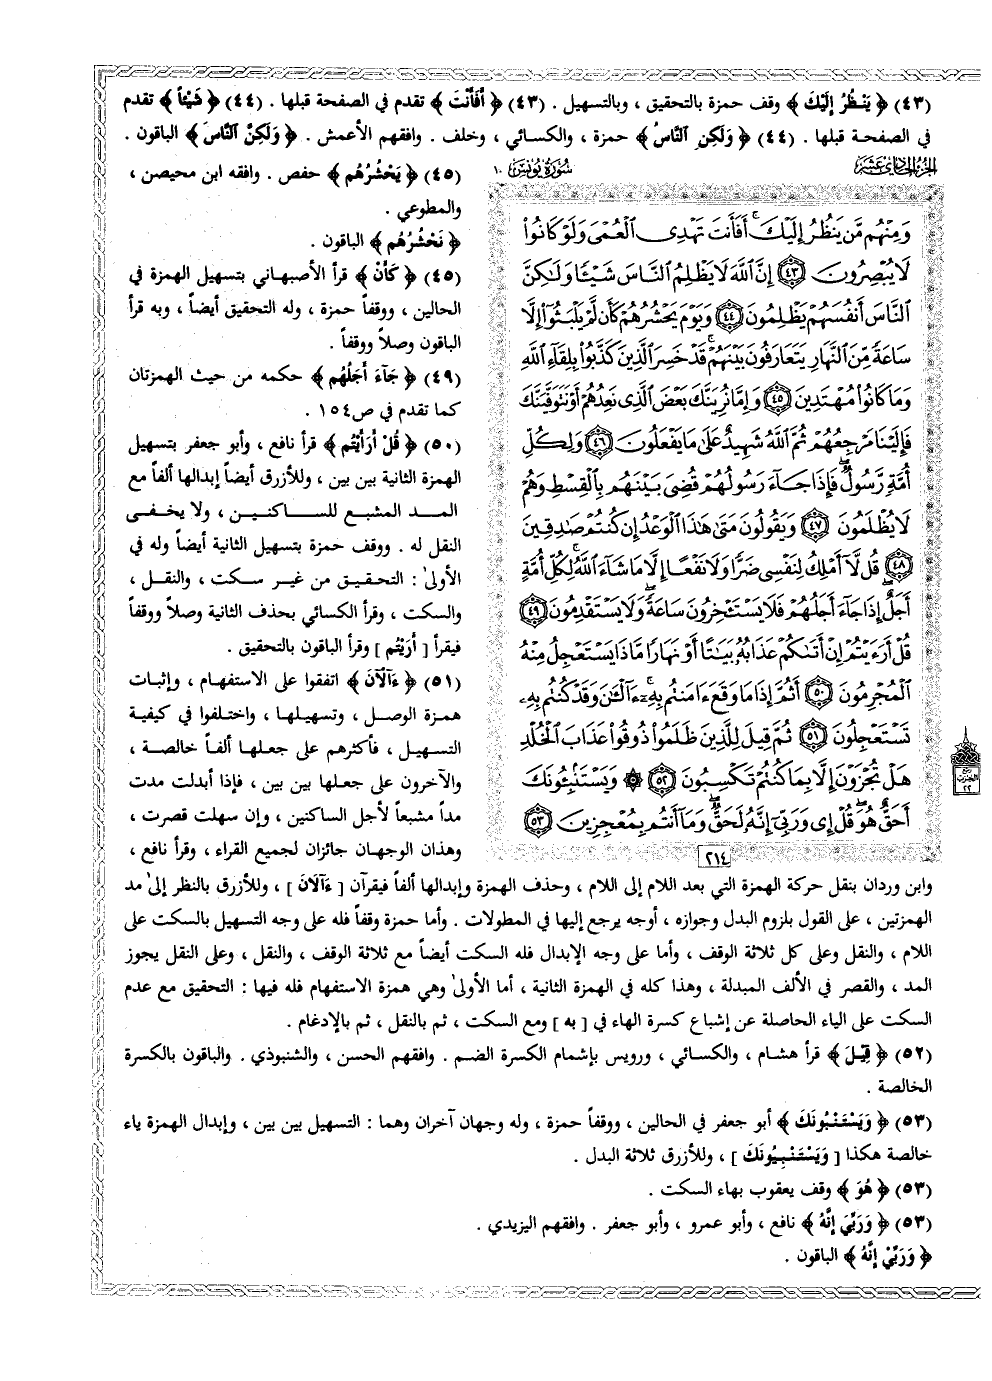 (٤٣) ﴿ يَنْظُرُ إِلَيْكَ ﴾ وقف حمزة بالتحقيق ، وبالتسهيل . (٤٣) ﴿ أَفَأَنْتَ ﴾ تقدم في الصفحة قبلها . (٤٤) ﴿ شَيْئاً ﴾ تقدم
في الصفحة قبلها . (٤٤) ﴿ وَلَكِنِ النَّاسُ ﴾ حمزة ، والكسائي ، وخلف . وافقهم الأعمش . ﴿ وَلَكِنَّ النَّاسَ ﴾ الباقون .
الجزء الحادى عشر
سورة يونس ١٠
وَمِنْهُم مَّن يَنظُرُ إِلَيْكَ أَفَأَنتَ تَهْدِى الْعُمْىَ وَلَوْ كَانُوا
لَا يُبْصِرُونَ ٤٣ إِنَّ اللَّهَ لَا يَظْلِمُ النَّاسَ شَيْئًا وَلَٰكِنَّ
النَّاسَ أَنفُسَهُمْ يَظْلِمُونَ ٤٤ وَيَوْمَ يَحْشُرُهُمْ كَأَن لَّمْ يَلْبَثُوا إِلَّا
سَاعَةً مِّنَ النَّهَارِ يَتَعَارَفُونَ بَيْنَهُمْ قَدْ خَسِرَ الَّذِينَ كَذَّبُوا بِلِقَاءِ اللَّهِ
وَمَا كَانُوا مُهْتَدِينَ ٤٥ وَإِمَّا نُرِيَنَّكَ بَعْضَ الَّذِى نَعِدُهُمْ أَوْ نَتَوَفَّيَنَّكَ
فَإِلَيْنَا مَرْجِعُهُمْ ثُمَّ اللَّهُ شَهِيدٌ عَلَىٰ مَا يَفْعَلُونَ ٤٦ وَلِكُلِّ
أُمَّةٍ رَّسُولٌ فَإِذَا جَاءَ رَسُولُهُمْ قُضِىَ بَيْنَهُم بِالْقِسْطِ وَهُمْ
لَا يُظْلَمُونَ ٤٧ وَيَقُولُونَ مَتَىٰ هَٰذَا الْوَعْدُ إِن كُنتُمْ صَادِقِينَ
٤٨ قُل لَّا أَمْلِكُ لِنَفْسِى ضَرًّا وَلَا نَفْعًا إِلَّا مَا شَاءَ اللَّهُ لِكُلِّ أُمَّةٍ
أَجَلٌ إِذَا جَاءَ أَجَلُهُمْ فَلَا يَسْتَـْٔخِرُونَ سَاعَةً وَلَا يَسْتَقْدِمُونَ ٤٩
قُلْ أَرَءَيْتُمْ إِنْ أَتَىٰكُمْ عَذَابُهُ بَيَٰتًا أَوْ نَهَارًا مَّاذَا يَسْتَعْجِلُ مِنْهُ
الْمُجْرِمُونَ ٥٠ أَثُمَّ إِذَا مَا وَقَعَ ءَامَنتُم بِهِ ءَآلْـَٰٔنَ وَقَدْ كُنتُم بِهِ
تَسْتَعْجِلُونَ ٥١ ثُمَّ قِيلَ لِلَّذِينَ ظَلَمُوا ذُوقُوا عَذَابَ الْخُلْدِ
هَلْ تُجْزَوْنَ إِلَّا بِمَا كُنتُمْ تَكْسِبُونَ ٥٢ وَيَسْتَنبِـُٔونَكَ
أَحَقٌّ هُوَ قُلْ إِى وَرَبِّى إِنَّهُ لَحَقٌّ وَمَا أَنتُم بِمُعْجِزِينَ ٥٣
٢١٤
(٤٥) ﴿ يَحْشُرُهُم ﴾ حفص . وافقه ابن محيصن ،
والمطوعي .
﴿ نَحْشُرُهُم ﴾ الباقون .
(٤٥) ﴿ كَأَنْ ﴾ قرأ الأصبهاني بتسهيل الهمزة في
الحالين ، ووقفاً حمزة ، وله التحقيق أيضاً ، وبه قرأ
الباقون وصلاً ووقفاً .
(٤٩) ﴿ جَآءَ أَجَلُهُم ﴾ حكمه من حيث الهمزتان
كما تقدم في ص١٥٤ .
(٥٠) ﴿ قُلْ أَرَأَيْتُم ﴾ قرأ نافع ، وأبو جعفر بتسهيل
الهمزة الثانية بين بين ، وللأزرق أيضاً إبدالها ألفاً مع
المد المشبع للساكنين ، ولا يخفى
النقل له . ووقف حمزة بتسهيل الثانية أيضاً وله في
الأولىٰ : التحقيق من غير سكت ، والنقل ،
والسكت ، وقرأ الكسائي بحذف الثانية وصلاً ووقفاً
فيقرأ [ أَرَيْتُم ] وقرأ الباقون بالتحقيق .
(٥١) ﴿ ءَآلَآنَ ﴾ اتفقوا على الاستفهام ، وإثبات
همزة الوصل ، وتسهيلها ، واختلفوا في كيفية
التسهيل ، فأكثرهم على جعلها ألفاً خالصة ،
والآخرون على جعلها بين بين ، فإذا أبدلت مدت
مداً مشبعاً لأجل الساكنين ، وإن سهلت قصرت ،
وهذان الوجهان جائزان لجميع القراء ، وقرأ نافع ،
وابن وردان بنقل حركة الهمزة التي بعد اللام إلى اللام ، وحذف الهمزة وإبدالها ألفاً فيقرآن [ ءَآلَانَ ] ، وللأزرق بالنظر إلىٰ مد
الهمزتين ، على القول بلزوم البدل وجوازه ، أوجه يرجع إليها في المطولات . وأما حمزة وقفاً فله على وجه التسهيل بالسكت على
اللام ، والنقل وعلى كل ثلاثة الوقف ، وأما على وجه الإبدال فله السكت أيضاً مع ثلاثة الوقف ، والنقل ، وعلى النقل يجوز
المد ، والقصر في الألف المبدلة ، وهذا كله في الهمزة الثانية ، أما الأولىٰ وهي همزة الاستفهام فله فيها : التحقيق مع عدم
السكت على الياء الحاصلة عن إشباع كسرة الهاء في [ به ] ومع السكت ، ثم بالنقل ، ثم بالإدغام .
(٥٢) ﴿ قِيْلَ ﴾ قرأ هشام ، والكسائي ، ورويس بإشمام الكسرة الضم . وافقهم الحسن ، والشنبوذي . والباقون بالكسرة
الخالصة .
(٥٣) ﴿ وَيَسْتَنْبُونَكَ ﴾ أبو جعفر في الحالين ، ووقفاً حمزة ، وله وجهان آخران وهما : التسهيل بين بين ، وإبدال الهمزة ياء
خالصة هكذا [ وَيَسْتَنْبِيُونَكَ ] ، وللأزرق ثلاثة البدل .
(٥٣) ﴿ هُوَ ﴾ وقف يعقوب بهاء السكت .
(٥٣) ﴿ وَرَبِّيَ إِنَّهُ ﴾ نافع ، وأبو عمرو ، وأبو جعفر . وافقهم اليزيدي .
﴿ وَرَبِّيْ إِنَّهُ ﴾ الباقون .